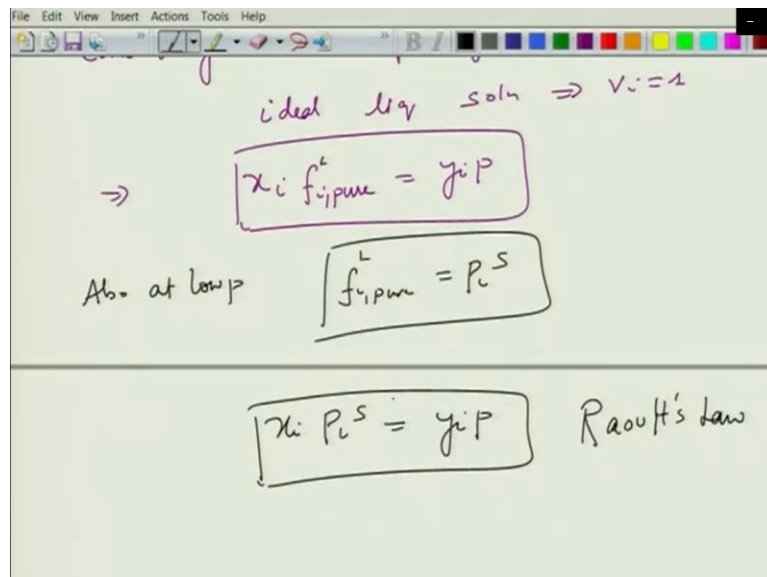 File Edit View Insert Actions Tools Help
ideal liq soln ⇒ γi = 1
⇒ xi f^L_i,pure = yi P
Also at low p f^L_i,pure = Pi^S
xi Pi^S = yi P Raoult's Law